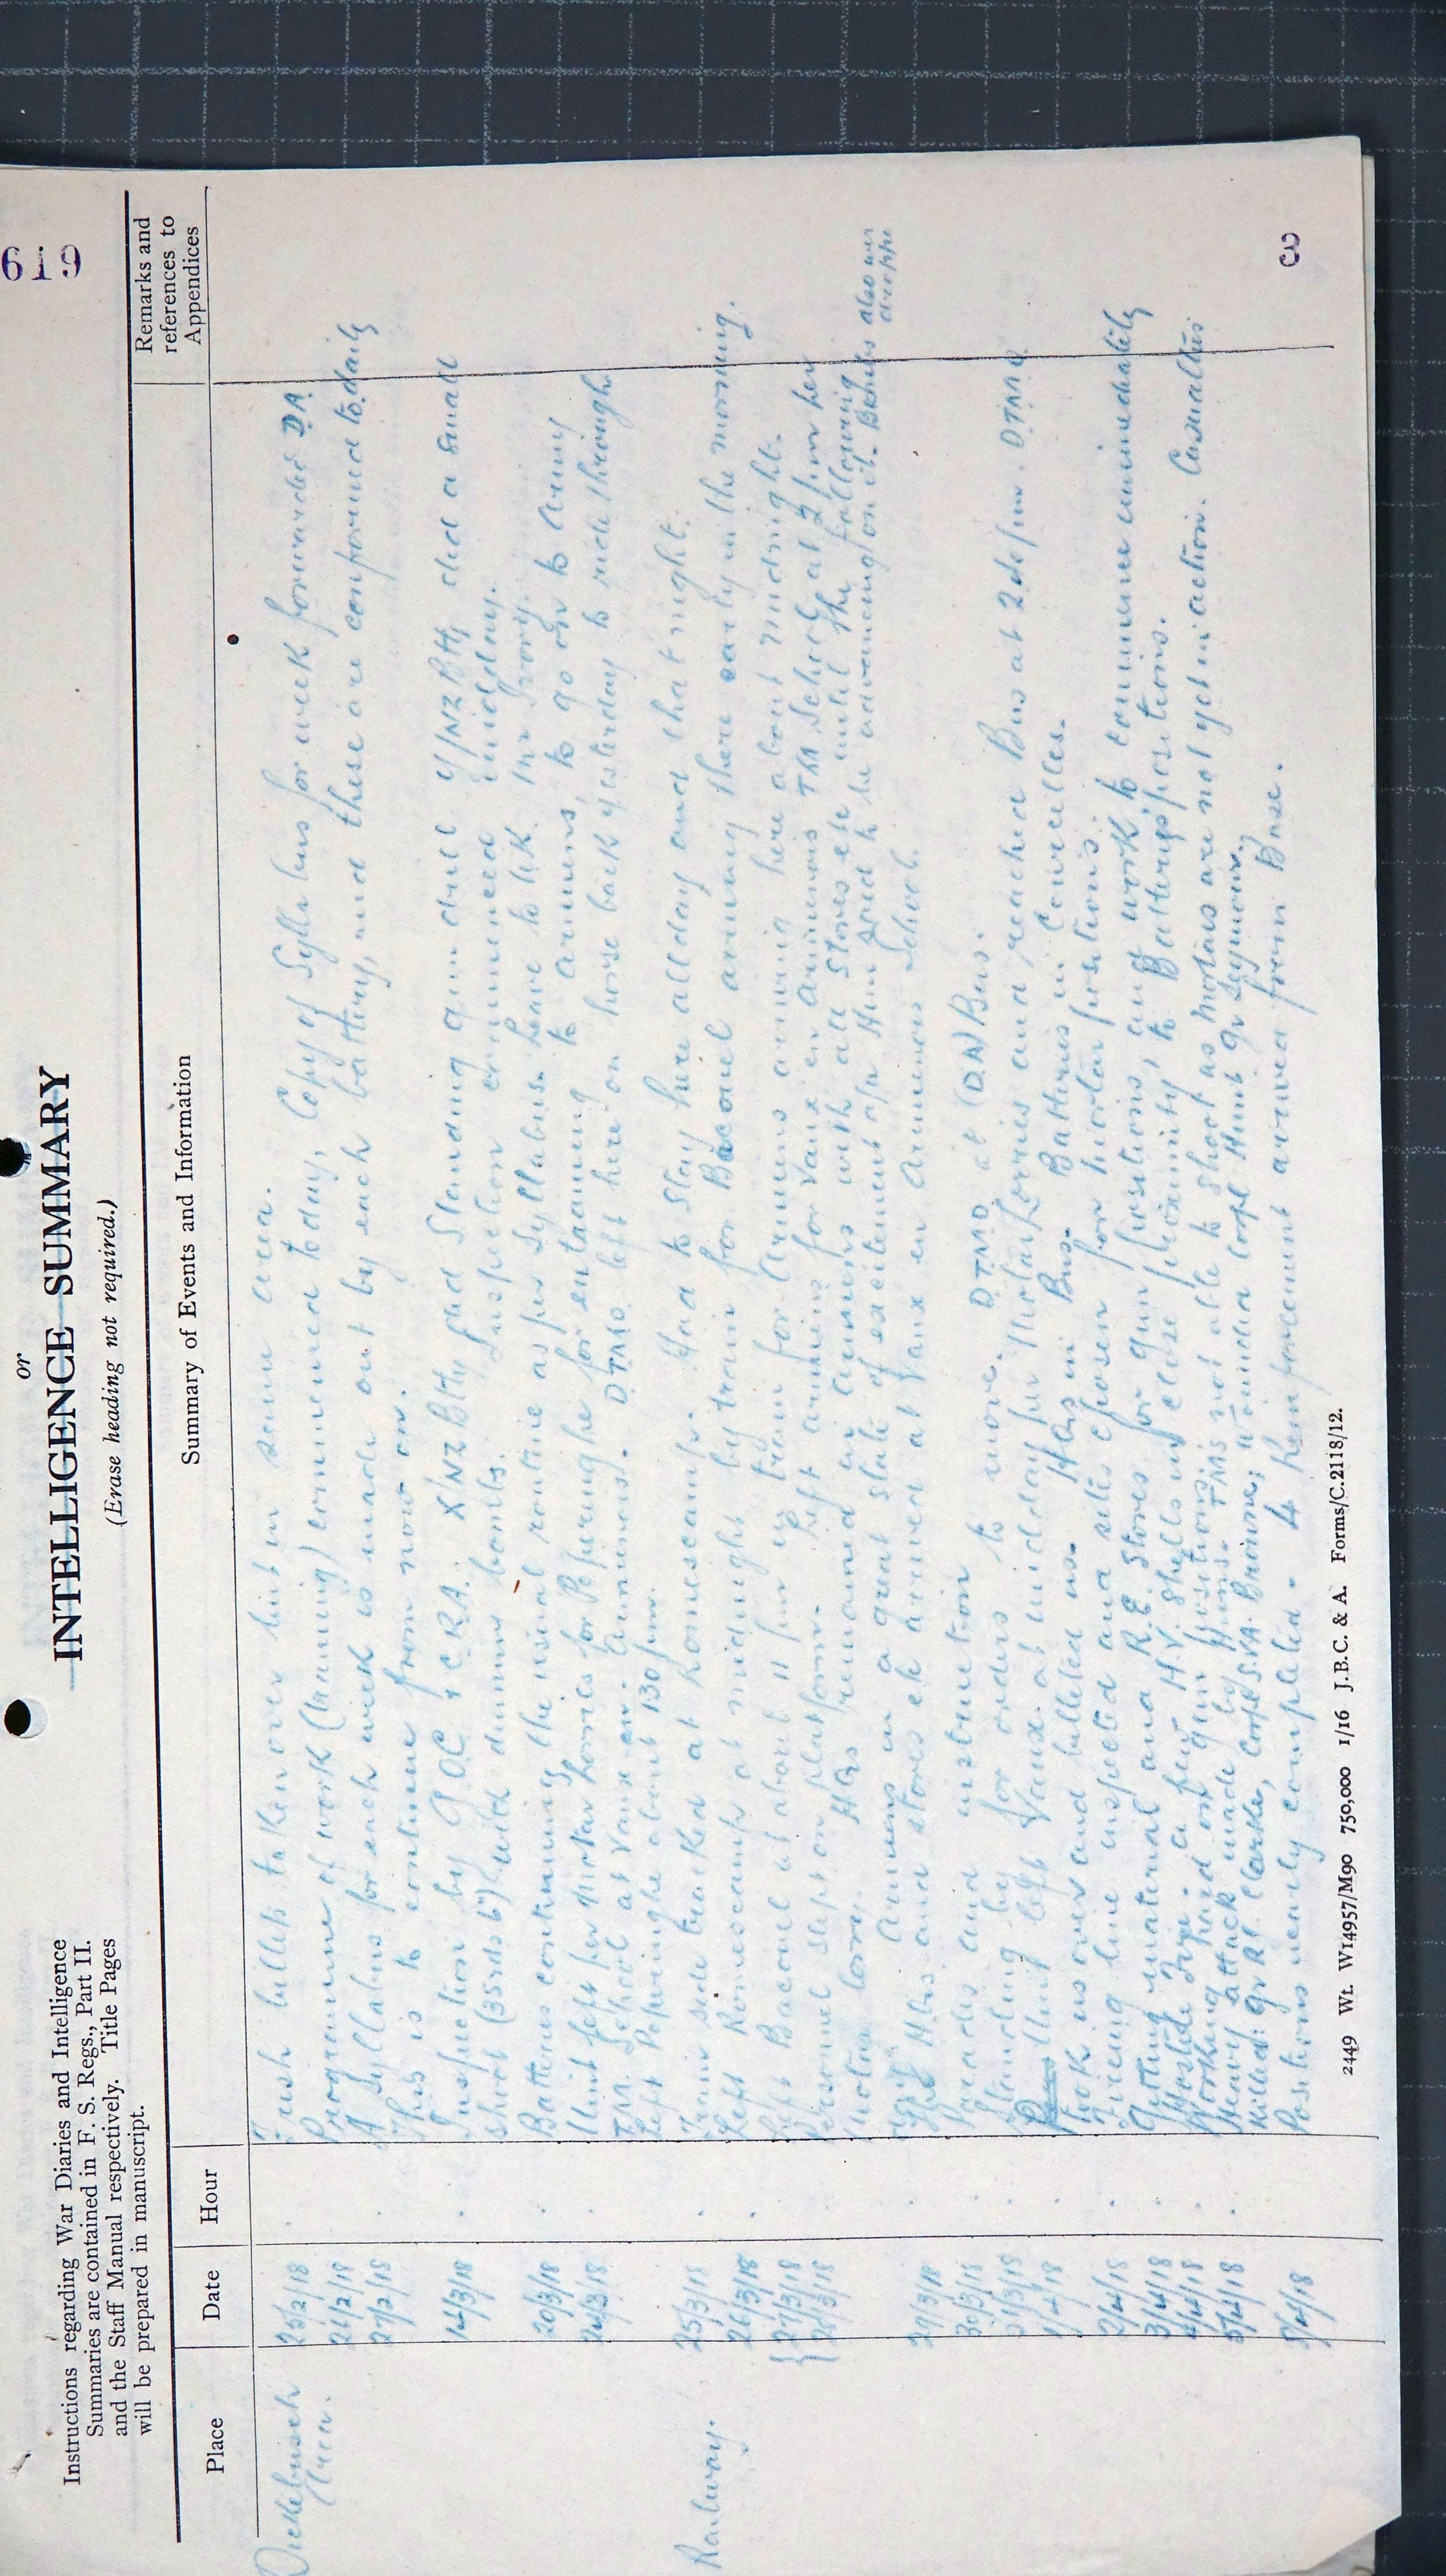 619
or
INTELLIGENCE SUMMARY
(Erase heading not required.)
Instructions regarding War Diaries and Intelligence
Summaries are contained in F. S. Regs., Part II.
and the Staff Manual respectively. Title Pages
will be prepared in manuscript.
Place Date Hour Summary of Events and Information Remarks and references to Appendices
Dickebusch Area. 25/2/18 Fresh billets taken over but in same area.
26/2/18 Programme of work (training) commenced today, Copy of Syllabus for week forwarded DA
27/2/18 A Syllabus for each week is made out by each battery, and these are conformed to daily
This is to continue from now on.
14/3/18 Inspection by GOC & CRA. X/NZ Bty had Standing gun drill Y/NZ Bty did a small
shoot (35rds 6") with dummy bombs. Inspection commenced midday.
20/3/18 Batteries continuing the usual routine as per Syllabus. Leave to UK
24/3/18 Unit left per Motor Lorries for Poperinghe for entraining to Amiens, to go on to Army
TM. School at Vaux en Amienois. DTMO left here on horse back yesterday to ride through
Left Poperinghe about 130 pm.
Railway. 25/3/18 Train side tracked at Romescamp. Had to stay here all day and that night.
26/3/18 Left Romescamp at midnight by train for Bacouel arriving there early in the morning.
27/3/18 Left Bacouel at about 11 pm by train for Amiens arriving here about midnight.
28/3/18 Personnel slept on platform. Left Amiens for Vaux en Amienois TM School at 2 pm per
Motor lorry. HQrs remained in Amiens with all stores etc until the following
day. Amiens in a great state of excitement as Hun said to be advancing on it. Bombs also over
29/3/18 HQrs and stores etc arrived at Vaux en Amienois School.
30/3/18 Parades and instruction DTMO at (DA) Bus.
31/3/18 Standing by for orders to move.
1/4/18 Unit left Vaux at midday per Motor Lorries and reached Bus at 2 pm. DTMO
took us over and billeted us. HQrs in Bus. Batteries in Courcelles.
2/4/18 Firing line inspected and sites chosen for mortar positions.
3/4/18 Getting material and R.E. Stores for gun positions, and work to commence immediately
4/4/18 Hostile Fire. a few H.V. Shells in close proximity to Batterys positions.
Working hard on gun positions.
5/4/18 Heavy attack made by Huns. TMs not able to shoot as mortars are not yet in action. Casualties
Killed: Gr RC Clarke, Corpl S.A. Browne, wounded Corpl Hunt Gr Seymour.
9/4/18 Positions nearly completed. 4 Reinforcement arrived from Base.
2449 Wt. W14957/M90 750,000 1/16 J.B.C. & A. Forms/C.2118/12.
3